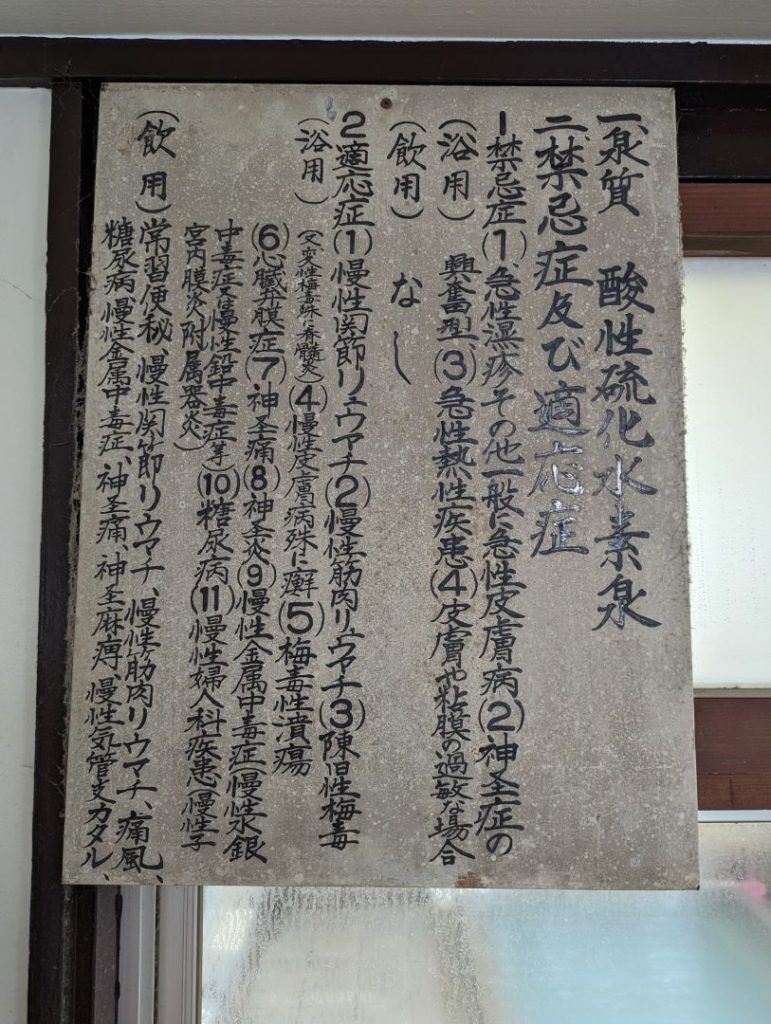 一、泉質 酸性硫化水素泉
二、禁忌症及び適応症
1禁忌症(1)急性湿疹その他一般に急性皮膚病(2)神圣症の
(浴用) 興奮型(3)急性熱性疾患(4)皮膚や粘膜の過敏な場合
(飲用) なし
2適応症(1)慢性関節リュウマチ(2)慢性筋肉リュウマチ(3)陳旧性梅毒
(浴用) (又変性梅毒殊に脊髄炎)(4)慢性皮膚病殊に癬(5)梅毒性潰瘍
(6)心臓弁膜症(7)神圣痛(8)神圣炎(9)慢性金属中毒症(慢性水銀
中毒症又は慢性鉛中毒症等)(10)糖尿病(11)慢性婦人科疾患(慢性子
宮内膜炎附属器炎)
(飲用) 常習便秘、慢性関節リウマチ、慢性筋肉リウマチ、痛風、
糖尿病、慢性金属中毒症、神圣痛、神圣麻痺、慢性気管支カタル、